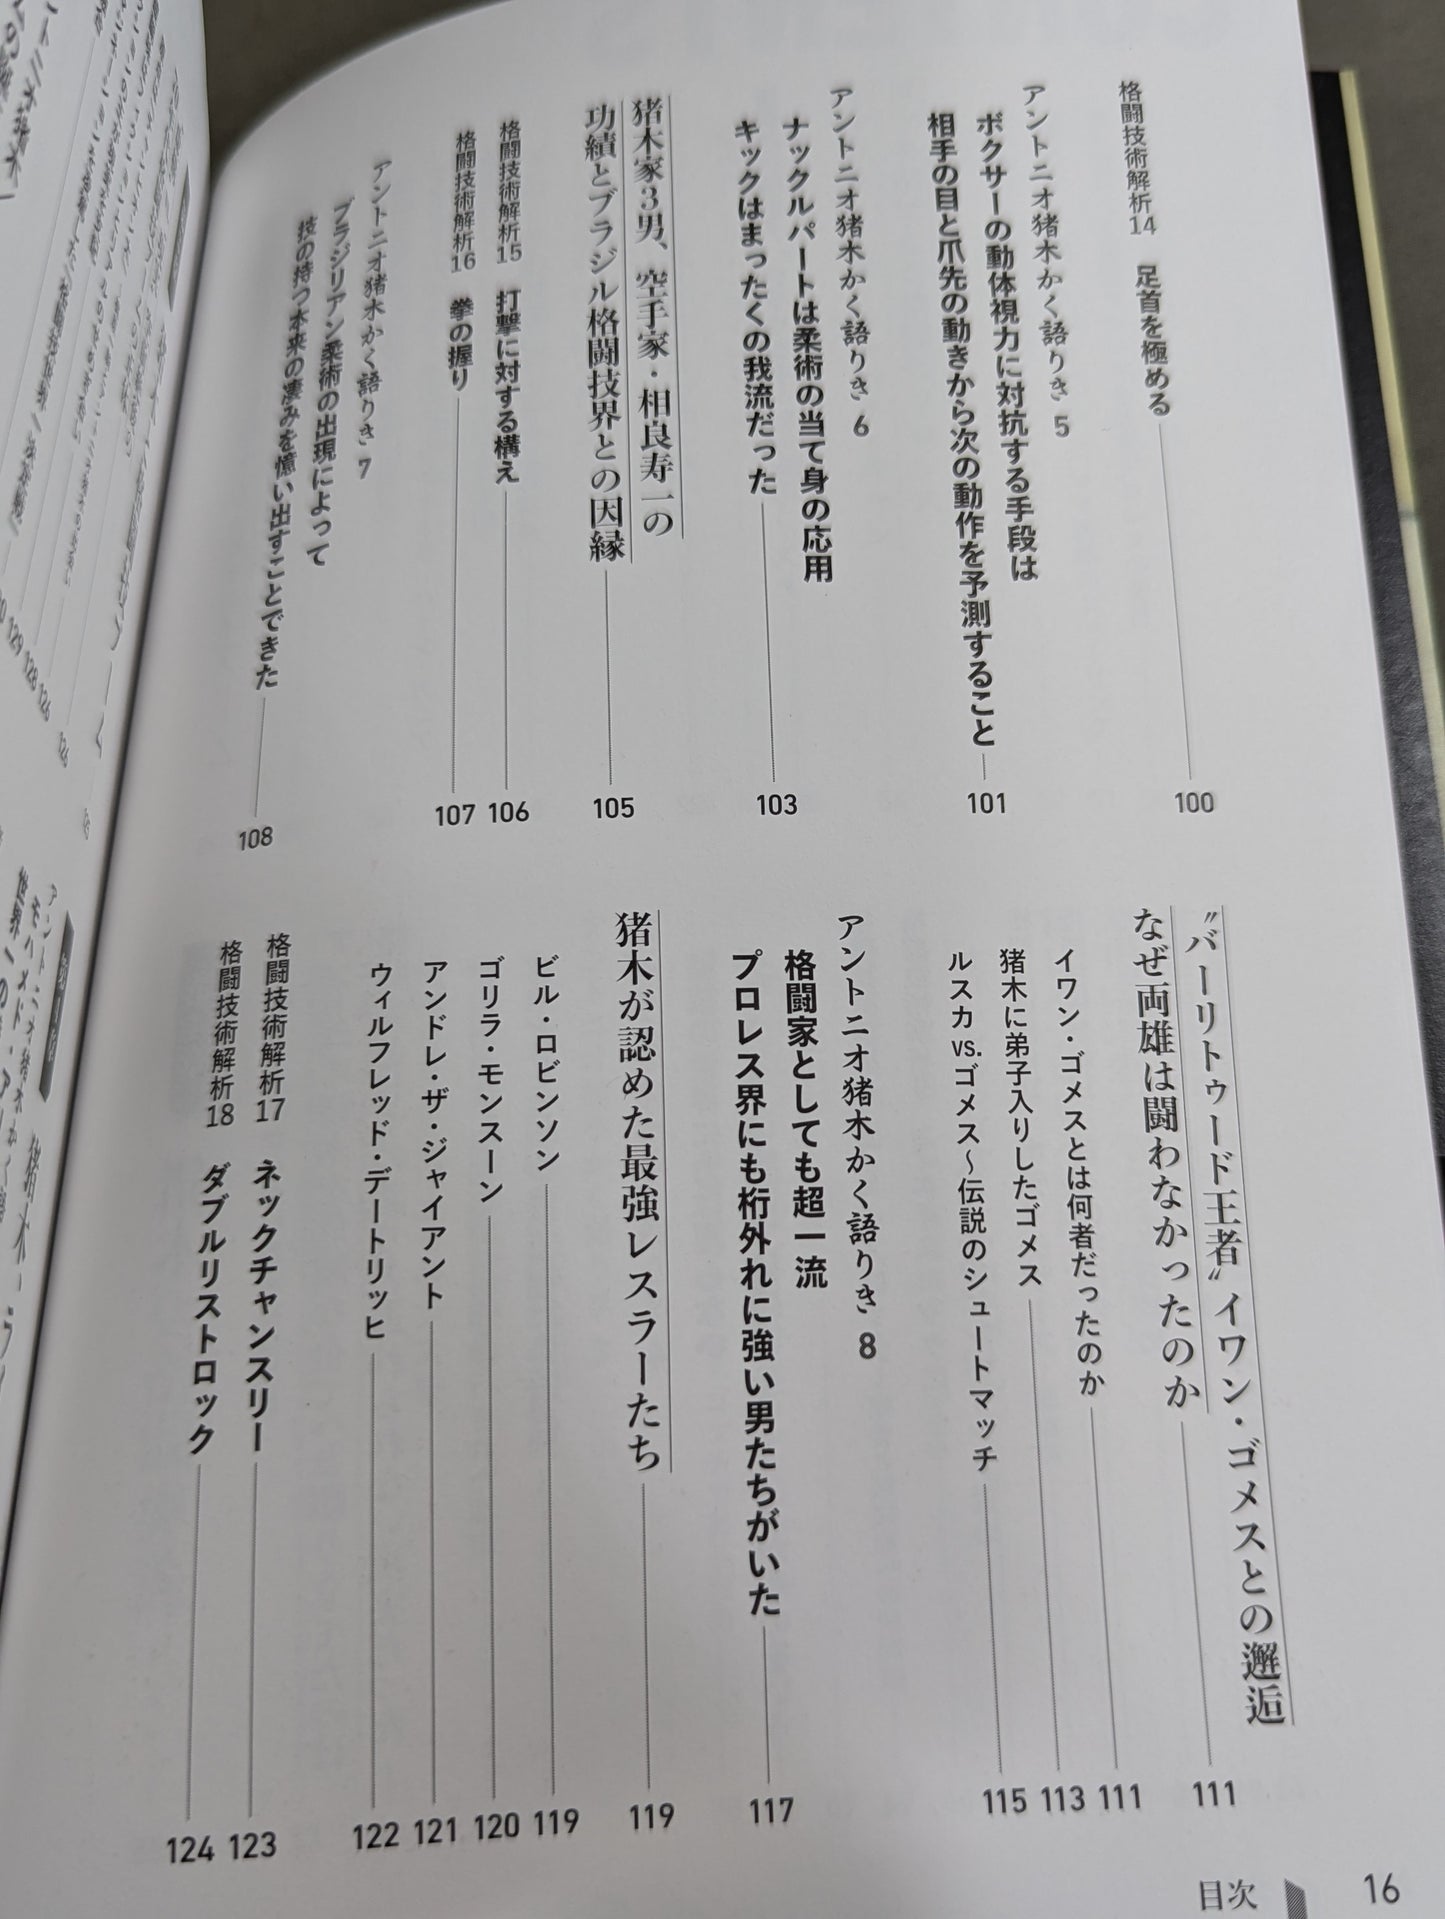 格闘技術解析14 足首を極める 100
アントニオ猪木かく語りき 5
ボクサーの動体視力に対抗する手段は
相手の目と爪先の動きから次の動作を予測すること 101
アントニオ猪木かく語りき 6
ナックルパートは柔術の当て身の応用
キックはまったくの我流だった 103
猪木家3男、空手家・相良寿一の
功績とブラジル格闘技界との因縁 105
格闘技術解析15 打撃に対する構え 106
格闘技術解析16 拳の握り 107
アントニオ猪木かく語りき 7
ブラジリアン柔術の出現によって
技の持つ本来の凄みを憶い出すことできた 108
〝バーリトゥード王者〟イワン・ゴメスとの邂逅
なぜ両雄は闘わなかったのか 111
イワン・ゴメスとは何者だったのか 111
猪木に弟子入りしたゴメス 113
ルスカ vs.ゴメス〜伝説のシュートマッチ 115
アントニオ猪木かく語りき 8
格闘家としても超一流
プロレス界にも桁外れに強い男たちがいた 117
猪木が認めた最強レスラーたち 119
ビル・ロビンソン 119
ゴリラ・モンスーン 120
アンドレ・ザ・ジャイアント 121
ウィルフレッド・デートリッヒ 122
格闘技術解析17 ネックチャンスリー 123
格闘技術解析18 ダブルリストロック 124
目次 16
129
128
126